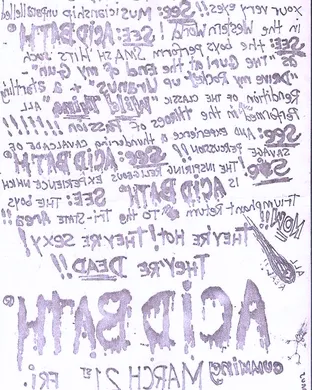 your very eyes!! See: Musicianship unparalleled
in the Western World! See: ACID BATH®
See: the boys perform SMASH HITS such
as "The Gun at the End of "my Gun"
"Drive my Rocket up Uranus" + a startling
Rendition of the classic "Wild Thing" ALL
Performed in the throes of Passion !!!!!!
See: AND experience the thundering cavalcade of
SAVAGE Percussion!! See: ACID BATH®
See! THE INSPIRING Religious EXPERIENCE which
IS ACID BATH® See: The boys
Triumphant Return to the Tri-State Area!!
NOW!!
THEY'RE HOT! THEY'RE SEXY!
THEY'RE DEAD!!
ACID BATH®
MARCH 21ST FRI